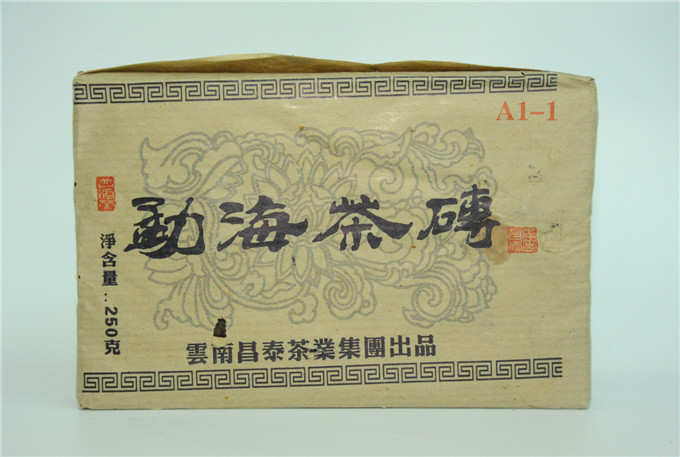 A1-1
勐海茶磚
淨含量:250克
雲南昌泰茶業集團出品